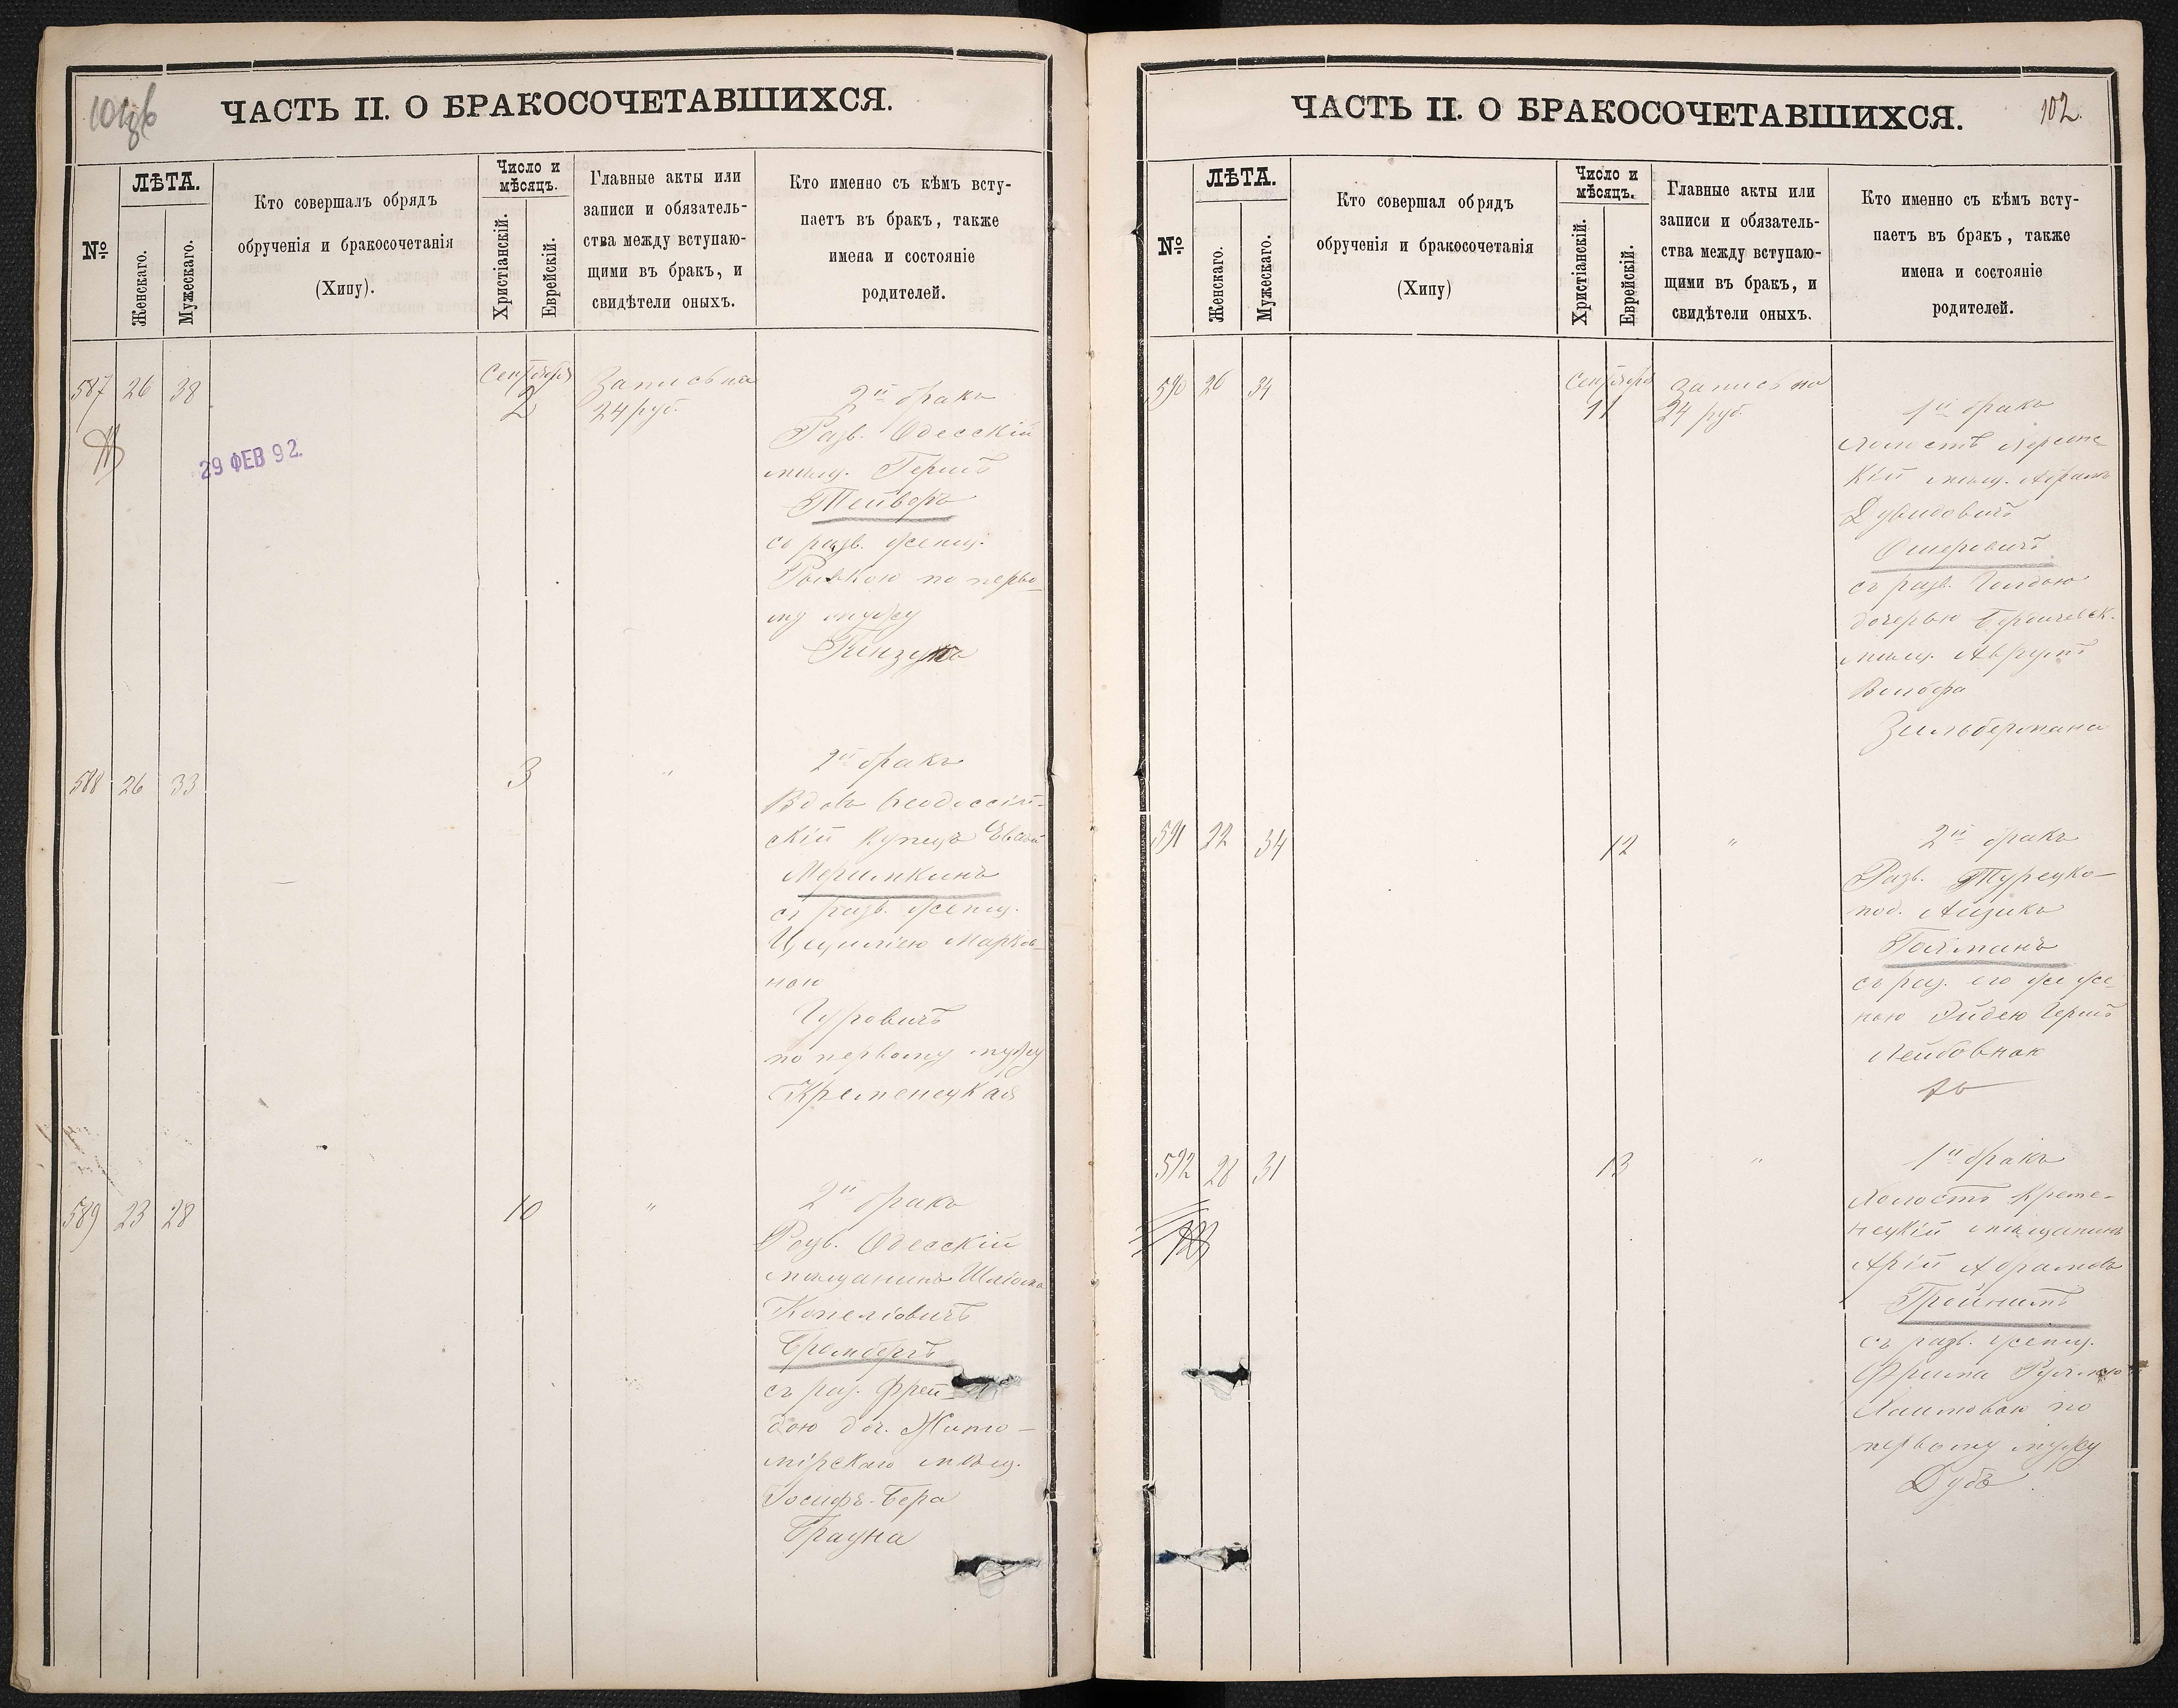 101об
ЧАСТЬ II. О БРАКОСОЧЕТАВШИХСЯ.
№
ЛѢТА.
Женскаго.
Мужескаго.
Кто совершалъ обрядъ
обрученія и бракосочетанія
(Хипу).
Число и
мѣсяцъ.
Христіанскій.
Еврейскій.
Главные акты или
записи и обязатель-
ства между вступаю-
щими въ бракъ, и
свидѣтели оныхъ.
Кто именно съ кѣмъ всту-
паетъ въ бракъ, также
имена и состояніе
родителей.
587 26 38
Сентября
2
Запись на
24 руб.
29 ФЕВ 92.
2й бракъ
Разв. Одесскій
мѣщ. Гершъ
Тейверъ
съ разв. женщ.
по перво-
му мужу
588 26 33
3
"
2й бракъ
Вдовъ Ѳеодоссій-
скій Купецъ
Меримкинъ
съ разв. женщ.
Цициліею Марков-
ною
Гуровичъ
по первому мужу
Кременецкая
589 23 28
10
"
2й бракъ
Разв. Одесскій
мѣщанинъ Шліома
Копеліовичъ
Бромбергъ
съ раз. Фрей-
дою доч. Жито-
мірскаго мѣщ.
Іосифъ-Бера
Брауна
102.
ЧАСТЬ II. О БРАКОСОЧЕТАВШИХСЯ.
№
ЛѢТА.
Женскаго.
Мужескаго.
Кто совершал обрядъ
обрученія и бракосочетанія
(Хипу)
Число и
мѣсяцъ.
Христіанскій.
Еврейскій.
Главные акты или
записи и обязатель-
ства между вступаю-
щими въ бракъ, и
свидѣтели оныхъ.
Кто именно съ кѣмъ всту-
паетъ въ бракъ, также
имена и состояніе
родителей.
590 26 34
Сентября
11
Запись на
24 руб.
1й бракъ
Холостъ Херсонс
кій мѣщ. Абрамъ
Дувидовичъ
Ошеровичъ
съ разв. Голдою
дочерью Бердичевск.
мѣщ. Аврумъ
Вольфа
Зильбермана
591 22 34
12
"
2й бракъ
Разв. Турецко-
под. Айзикъ
Гойхманъ
съ раз. его же же-
ною Эйдею Гершъ
Лейбовною
592 28 31
13
"
1й бракъ
Холостъ Креме-
нецкій мѣщанинъ
Арій Абрамовъ
Тройнимъ
съ разв. женщ.
Хаимовою по
первому мужу
Дубъ